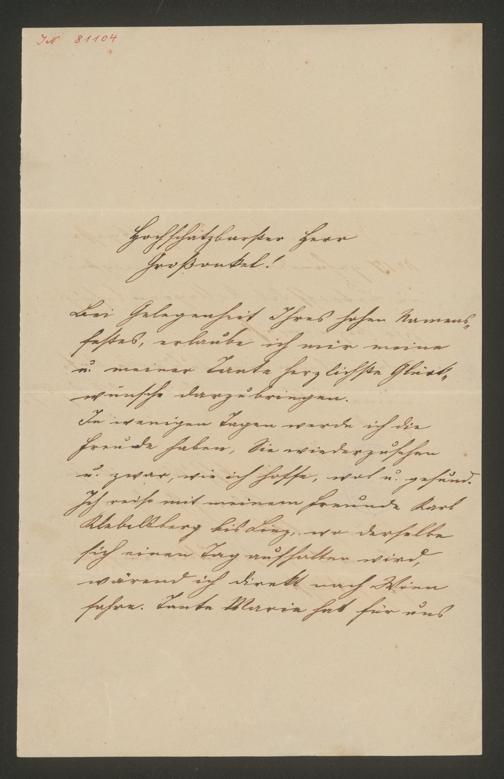 IN 81104
Hochschätzbarster Herr
Großonkel!
Bei Gelegenheit Ihres hohen Namens-
festes, erlaube ich mir meine
u. meiner Tante herzlichste Glück-
wünsche darzubringen.
In wenigen Tagen werde ich die
Freude haben, Sie wiederzusehen
u. zwar, wie ich hoffe, wol u. gesund.
Ich reise mit meinem Freunde Karl
Klebelsberg bis Linz, wo derselbe
sich einen Tag aufhalten wird,
wärend ich direkt nach Wien
fahre. Tante Marie hat für uns